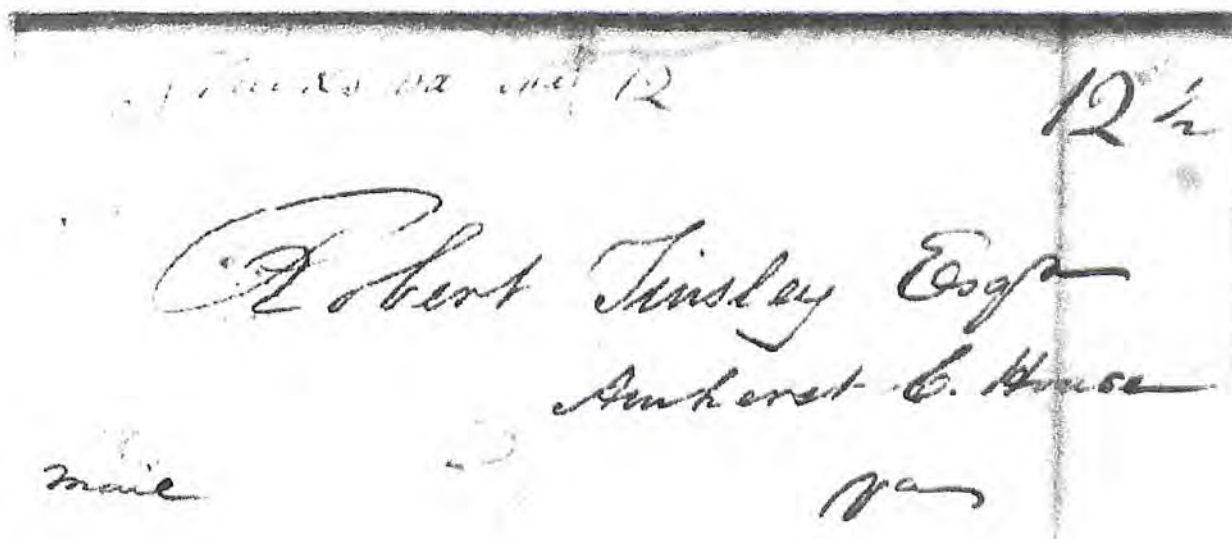 va 12
12 1/2
Robert Tinsley Esqr
Amherst C. House
mail
Va